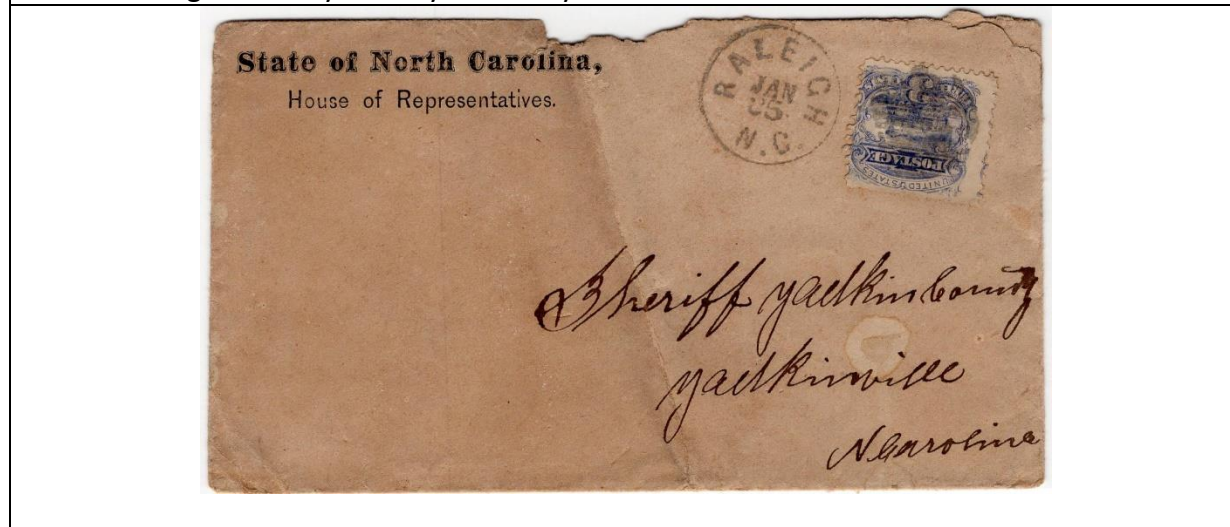 State of North Carolina,
House of Representatives.
RALEIGH
JAN
25
N.C.
POSTAGE
UNITED STATES
Sheriff Yadkin County
Yadkinville
N Carolina